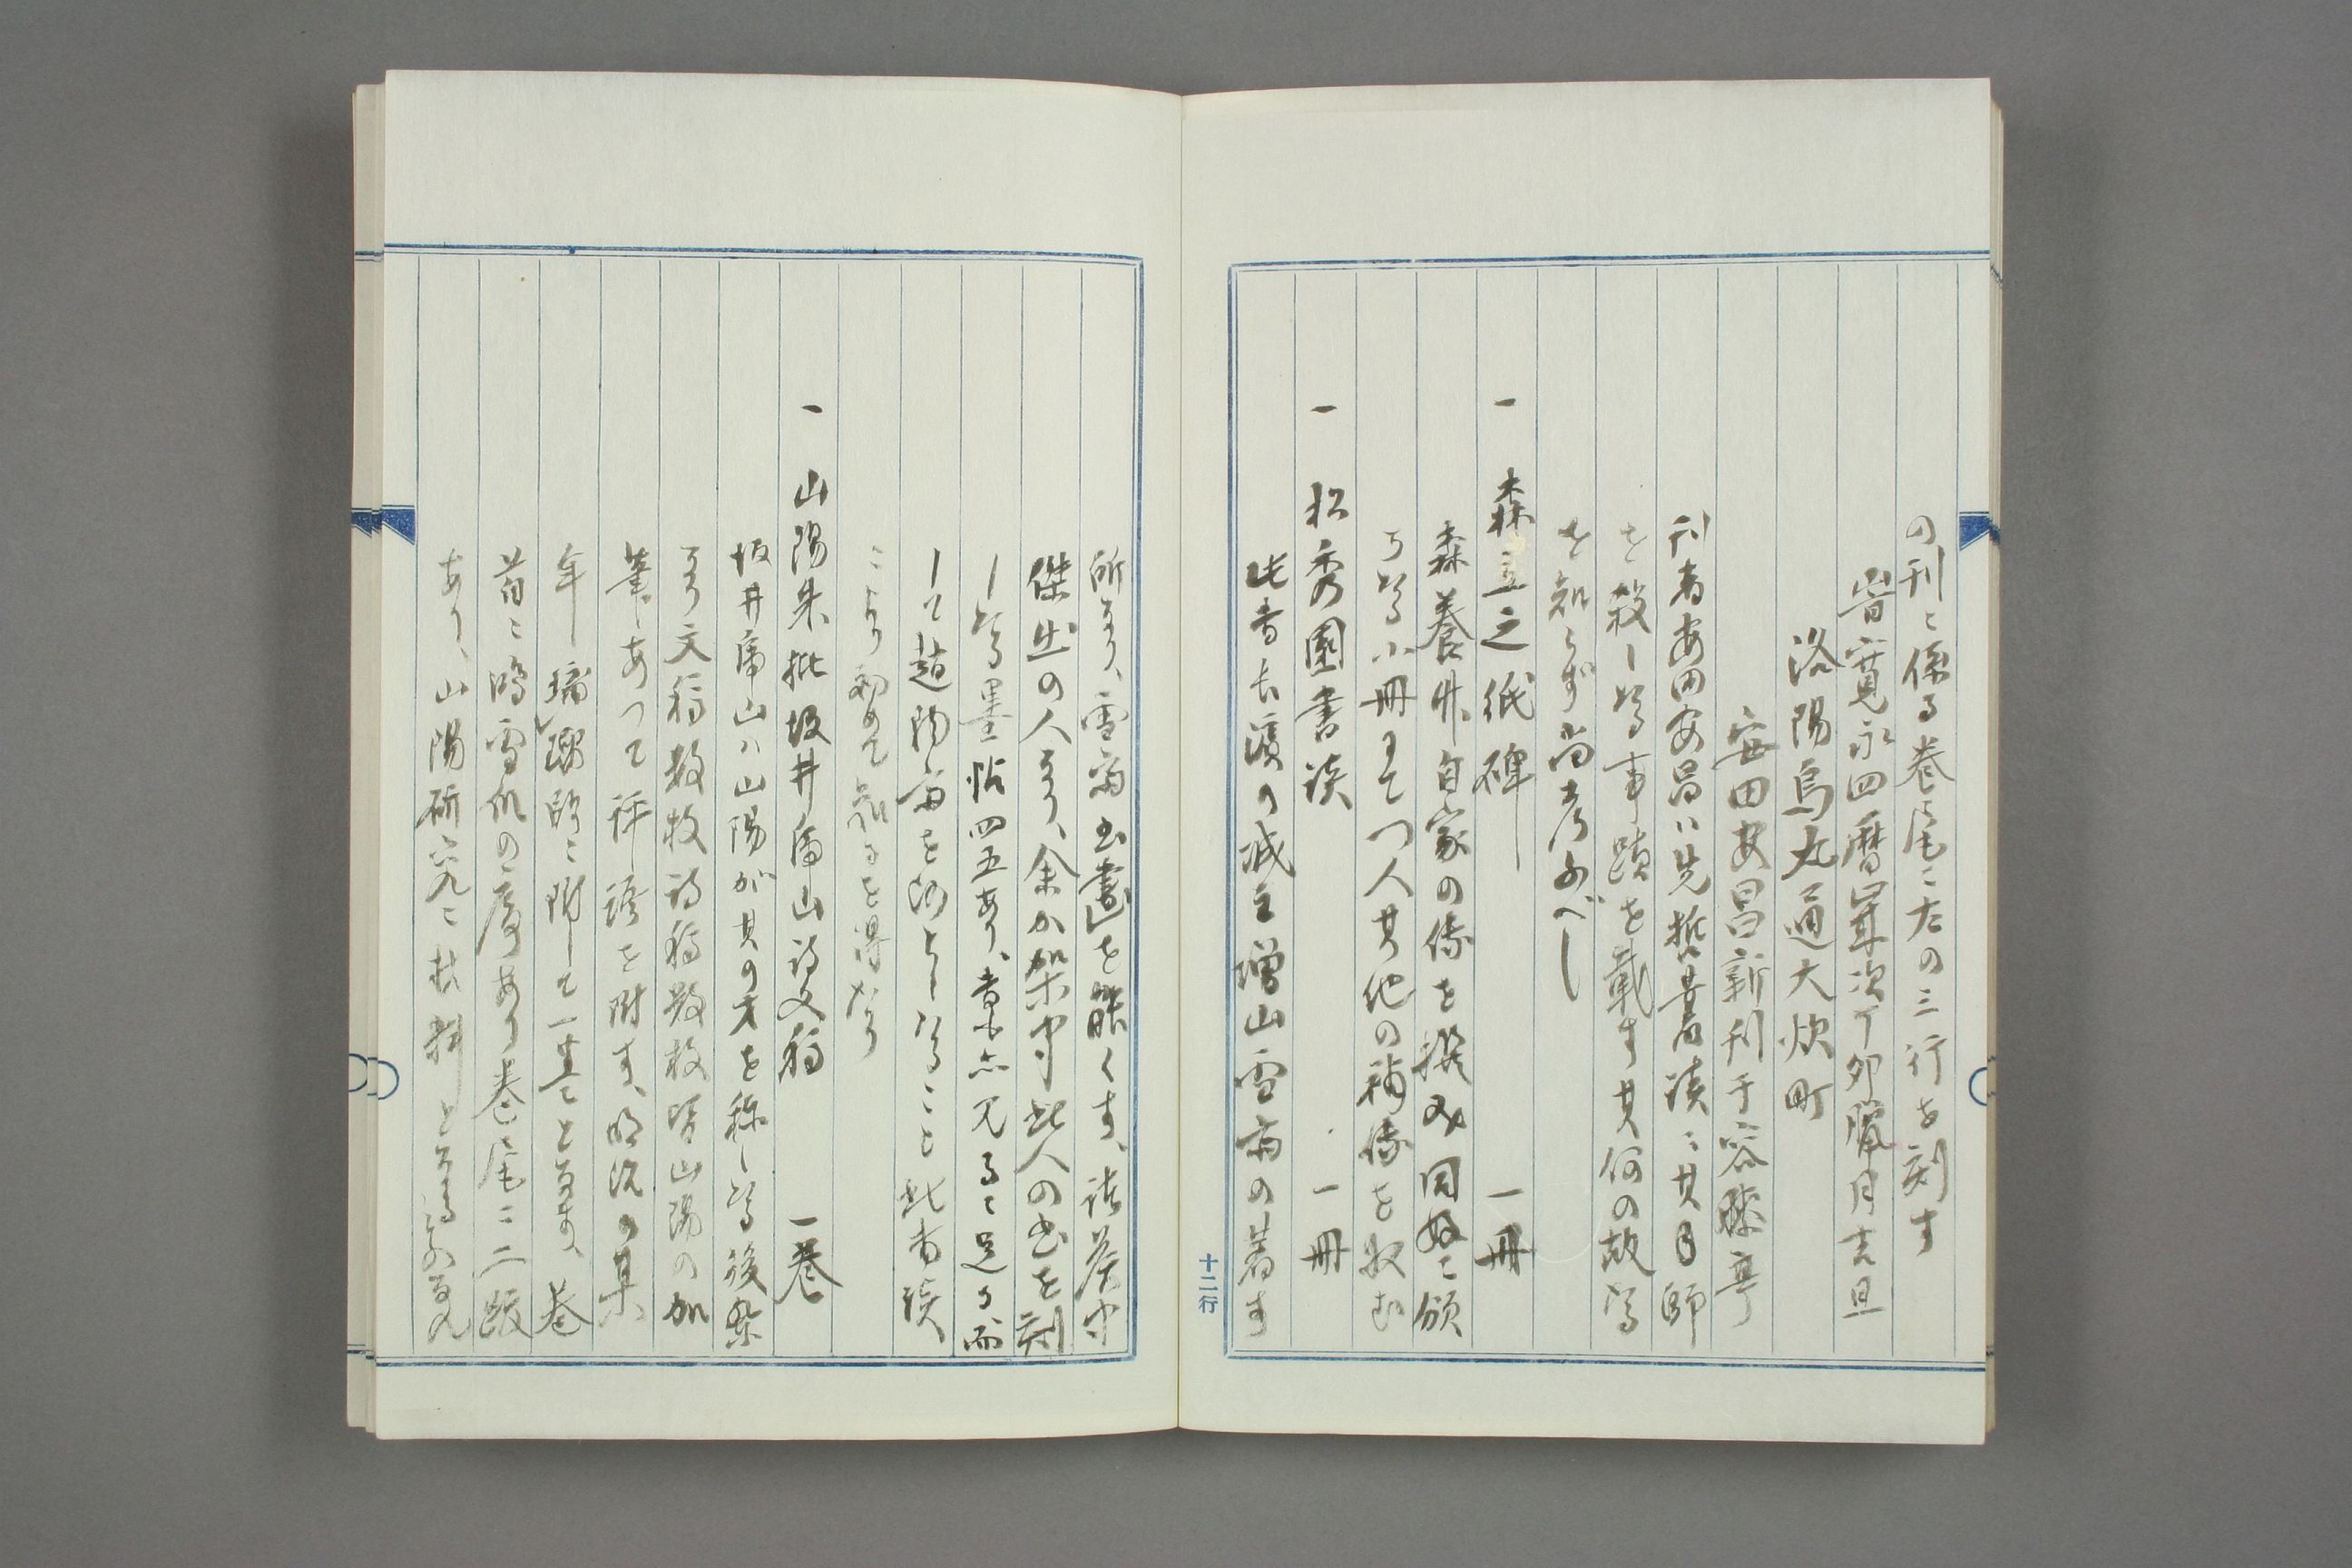 の刊ニ係る巻尾ニ左の三行を刻す
旹寛永四暦䒭次丁卯臘月吉旦
洛陽烏丸通大炊町
安田安昌新刊于容膝亭
刊者安田安昌ハ先哲叢談ニ其師
を殺したる事蹟を載す其何の故たる
を知らず尚考ふべし
一 森立之紙碑 一冊
森養竹自家の傳を撰み同好ニ頒
ちたる小冊にて 人其他の補傳を収む
一 松秀園書談 一冊
此書長嶋の城主増山雪斎の著す
所なり、雪斎書画を能くす、諸侯中
傑出の人なり、余か架中此人の書を刻
したる墨帖四五あり、書亦見るニ足る而
して趙陶斎を師としたること此書談
ニより初めて知るを得たり
一 山陽朱批坂井虎山詩文稿 一巻
坂井虎山ハ山陽が其の才を称したる後輩
なり文稿数枚詩稿数枚皆山陽の加
筆あつて評語を附す、明治の某
年 ニ附して一巻となす、巻
首ニ鳴雪 の序あり巻尾ニ二跋
あり、山陽研究ニ 料となる
十二行